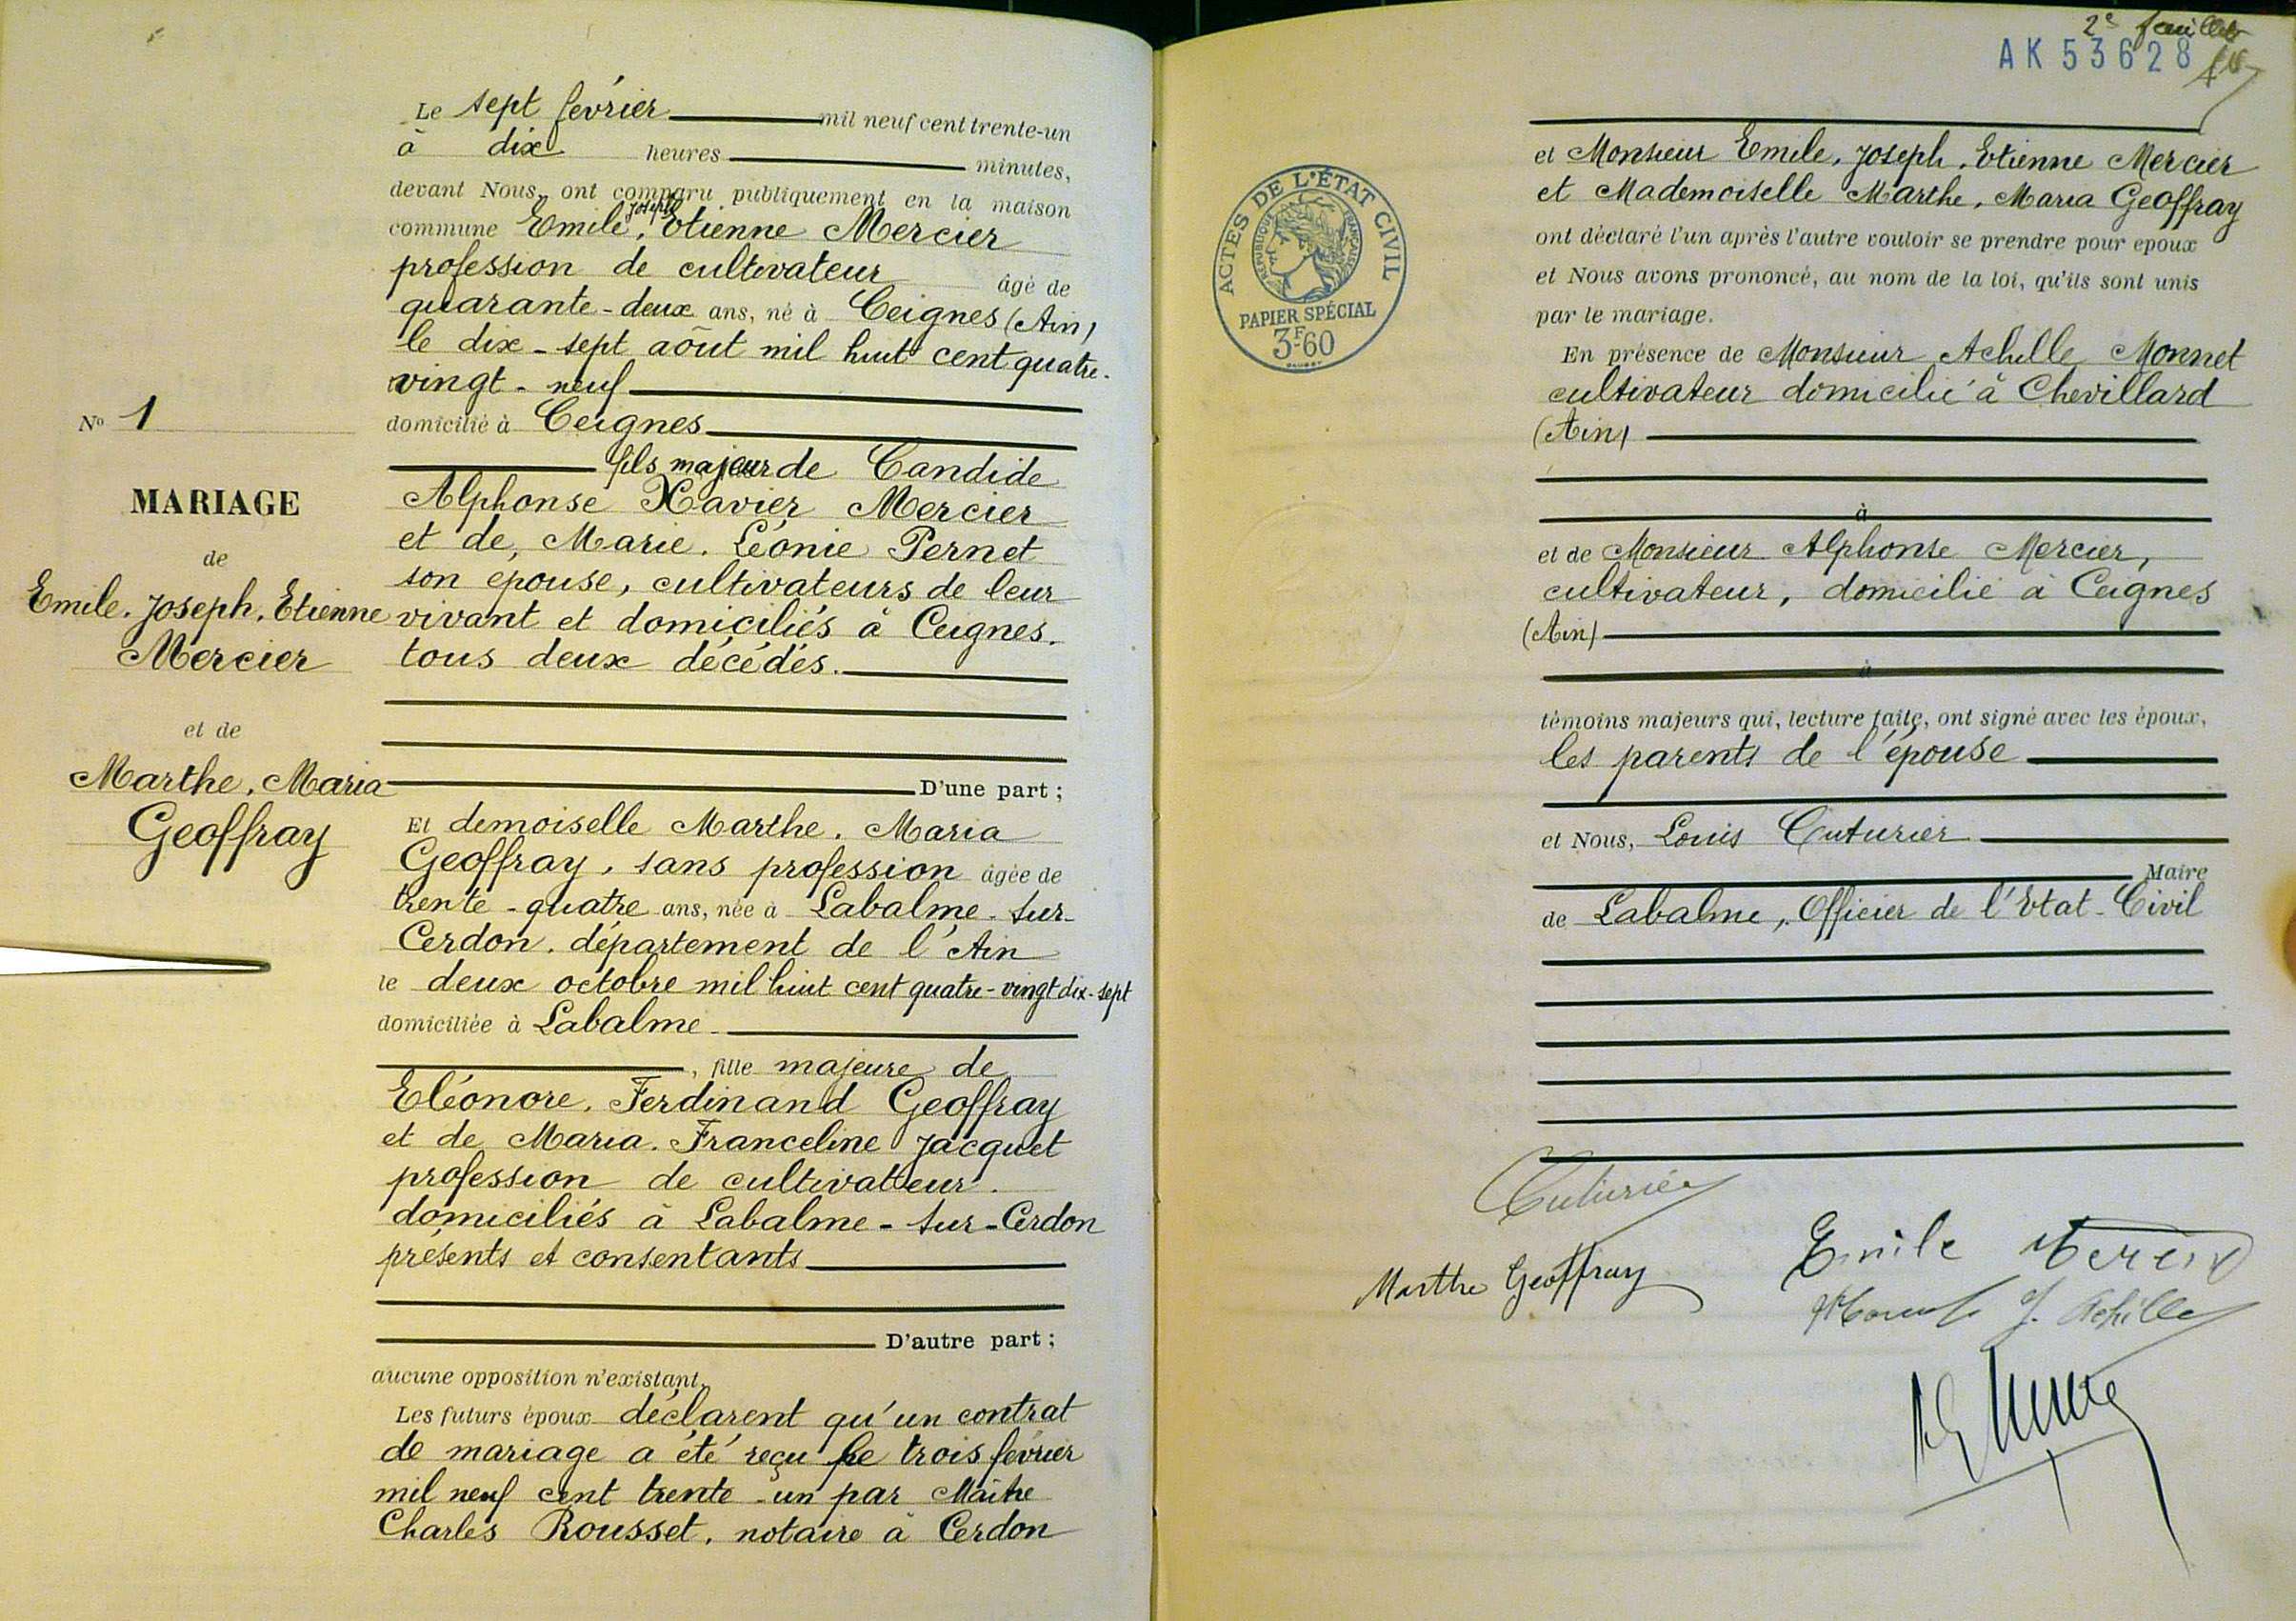 Le sept février mil neuf cent trente-un
à dix heures minutes,
devant Nous, ont comparu publiquement en la maison
commune Emile, Joseph, Etienne Mercier
profession de cultivateur âgé de
quarante-deux ans, né à Ceignes (Ain)
le dix-sept août mil huit cent quatre-
vingt-neuf
domicilié à Ceignes
fils majeur de Candide
Alphonse Xavier Mercier
et de, Marie. Léonie Pernet
son épouse, cultivateurs de leur
vivant et domiciliés à Ceignes.
tous deux décédés.
D'une part ;
Et demoiselle Marthe. Maria
Geoffray, sans profession âgée de
trente-quatre ans, née à Labalme-sur-
Cerdon. département de l'Ain
le deux octobre mil huit cent quatre-vingt dix-sept
domiciliée à Labalme
, fille majeure de
Eléonore. Ferdinand Geoffray
et de Maria. Franceline Jacquet
profession de cultivateur.
domiciliés à Labalme-sur-Cerdon
présents et consentants
D'autre part ;
aucune opposition n'existant.
Les futurs époux déclarent qu'un contrat
de mariage a été reçu le trois février
mil neuf cent trente-un par Maître
Charles Rousset, notaire à Cerdon
No 1
MARIAGE
de
Emile. Joseph. Etienne
Mercier
et de
Marthe. Maria
Geoffray
2e feuillet
AK 53628
ACTES DE L'ÉTAT CIVIL
RÉPUBLIQUE FRANÇAISE
PAPIER SPÉCIAL
3F60
et Monsieur Emile. Joseph. Etienne Mercier
et Mademoiselle Marthe. Maria Geoffray
ont déclaré l'un après l'autre vouloir se prendre pour epoux
et Nous avons prononcé, au nom de la loi, qu'ils sont unis
par le mariage.
En présence de Monsieur Achille Monnet
cultivateur domicilié à Chevillard
(Ain)
à
et de Monsieur Alphonse Mercier,
cultivateur, domicilié à Ceignes
(Ain)
à
témoins majeurs qui, lecture faite, ont signé avec les époux,
les parents de l'épouse
et Nous, Louis Cuturier
Maire
de Labalme, Officier de l'Etat-Civil
Cuturier
Emile Mercier
Marthe Geoffray
J. Achille